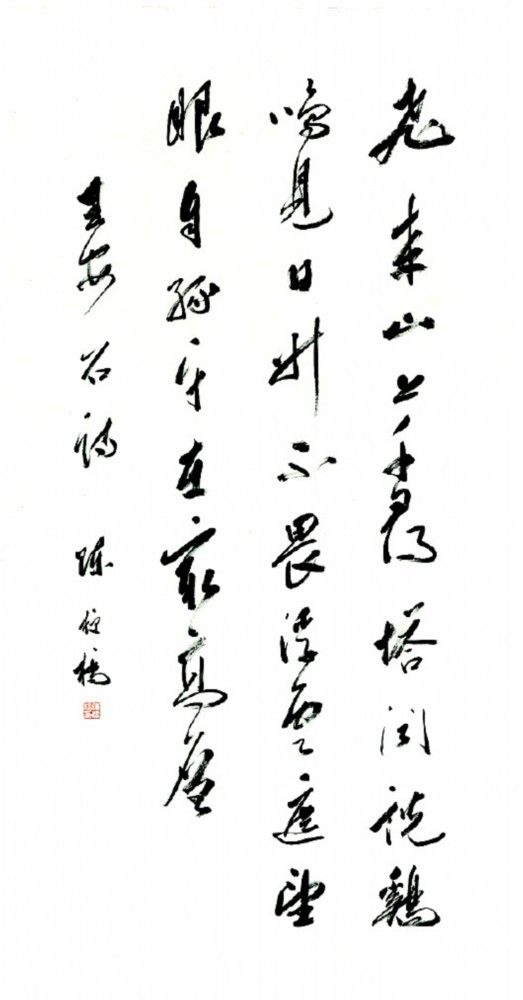 飛来山上千尋塔聞説鷄
鳴見日升不畏浮雲遮望
眼自緣身在最高層
王安石詩 陳